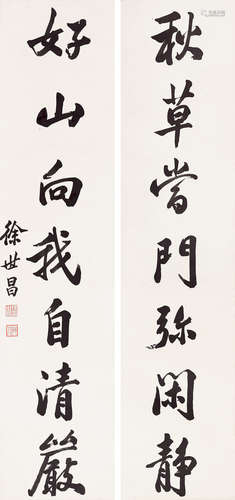 秋草當門弥閑靜
好山向我自清嚴
徐世昌